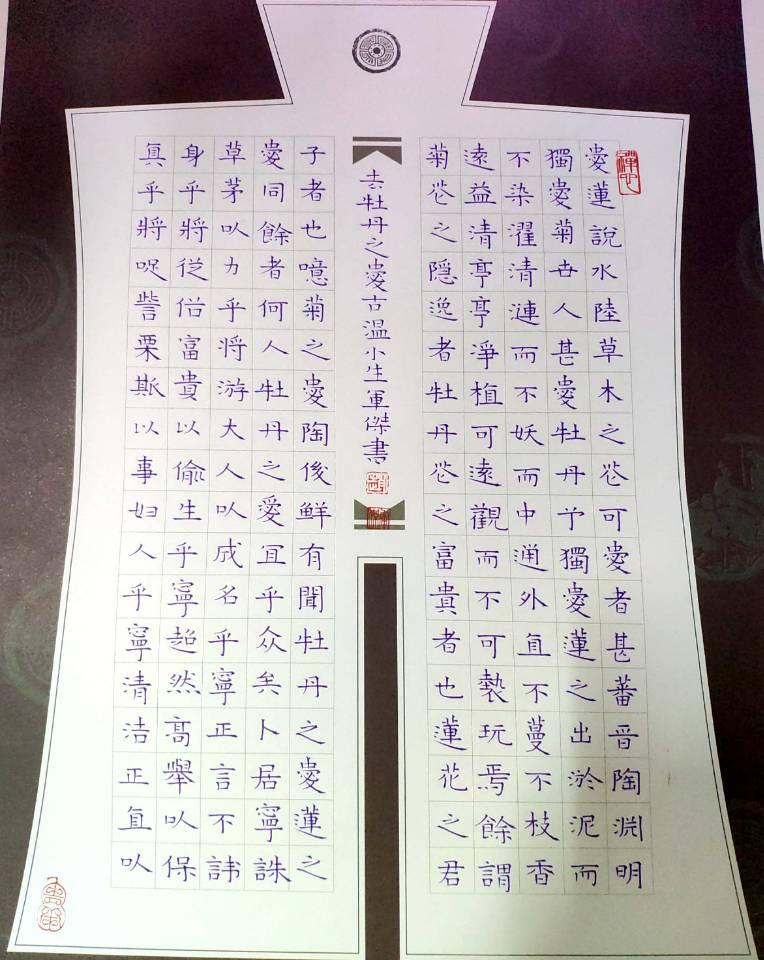 愛蓮說水陸草木之花可愛者甚蕃晉陶渊明
獨愛菊世人甚愛牡丹予獨愛蓮之出淤泥而
不染濯清漣而不妖而中通外直不蔓不枝香
遠益清亭亭淨植可遠觀而不可褻玩焉餘謂
菊花之隱逸者牡丹花之富貴者也蓮花之君
子者也噫菊之愛陶後鮮有聞牡丹之愛蓮之
愛同餘者何人牡丹之愛宜乎众矣卜居寧誅
草茅以力乎將游大人以成名乎寧正言不諱
身乎將從俗富貴以偷生乎寧超然高舉以保
真乎將哫訾栗斯以事妇人乎寧清洁正直以
去牡丹之愛古温小生軍傑書